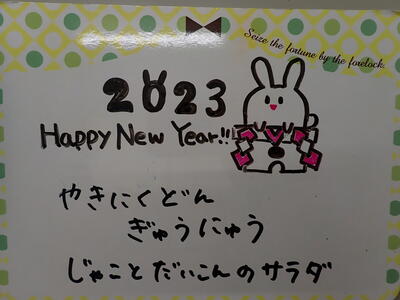 Seize the fortune by the forelock.
2023
Happy New Year!!
やきにくどん
ぎゅうにゅう
じゃことだいこんのサラダ